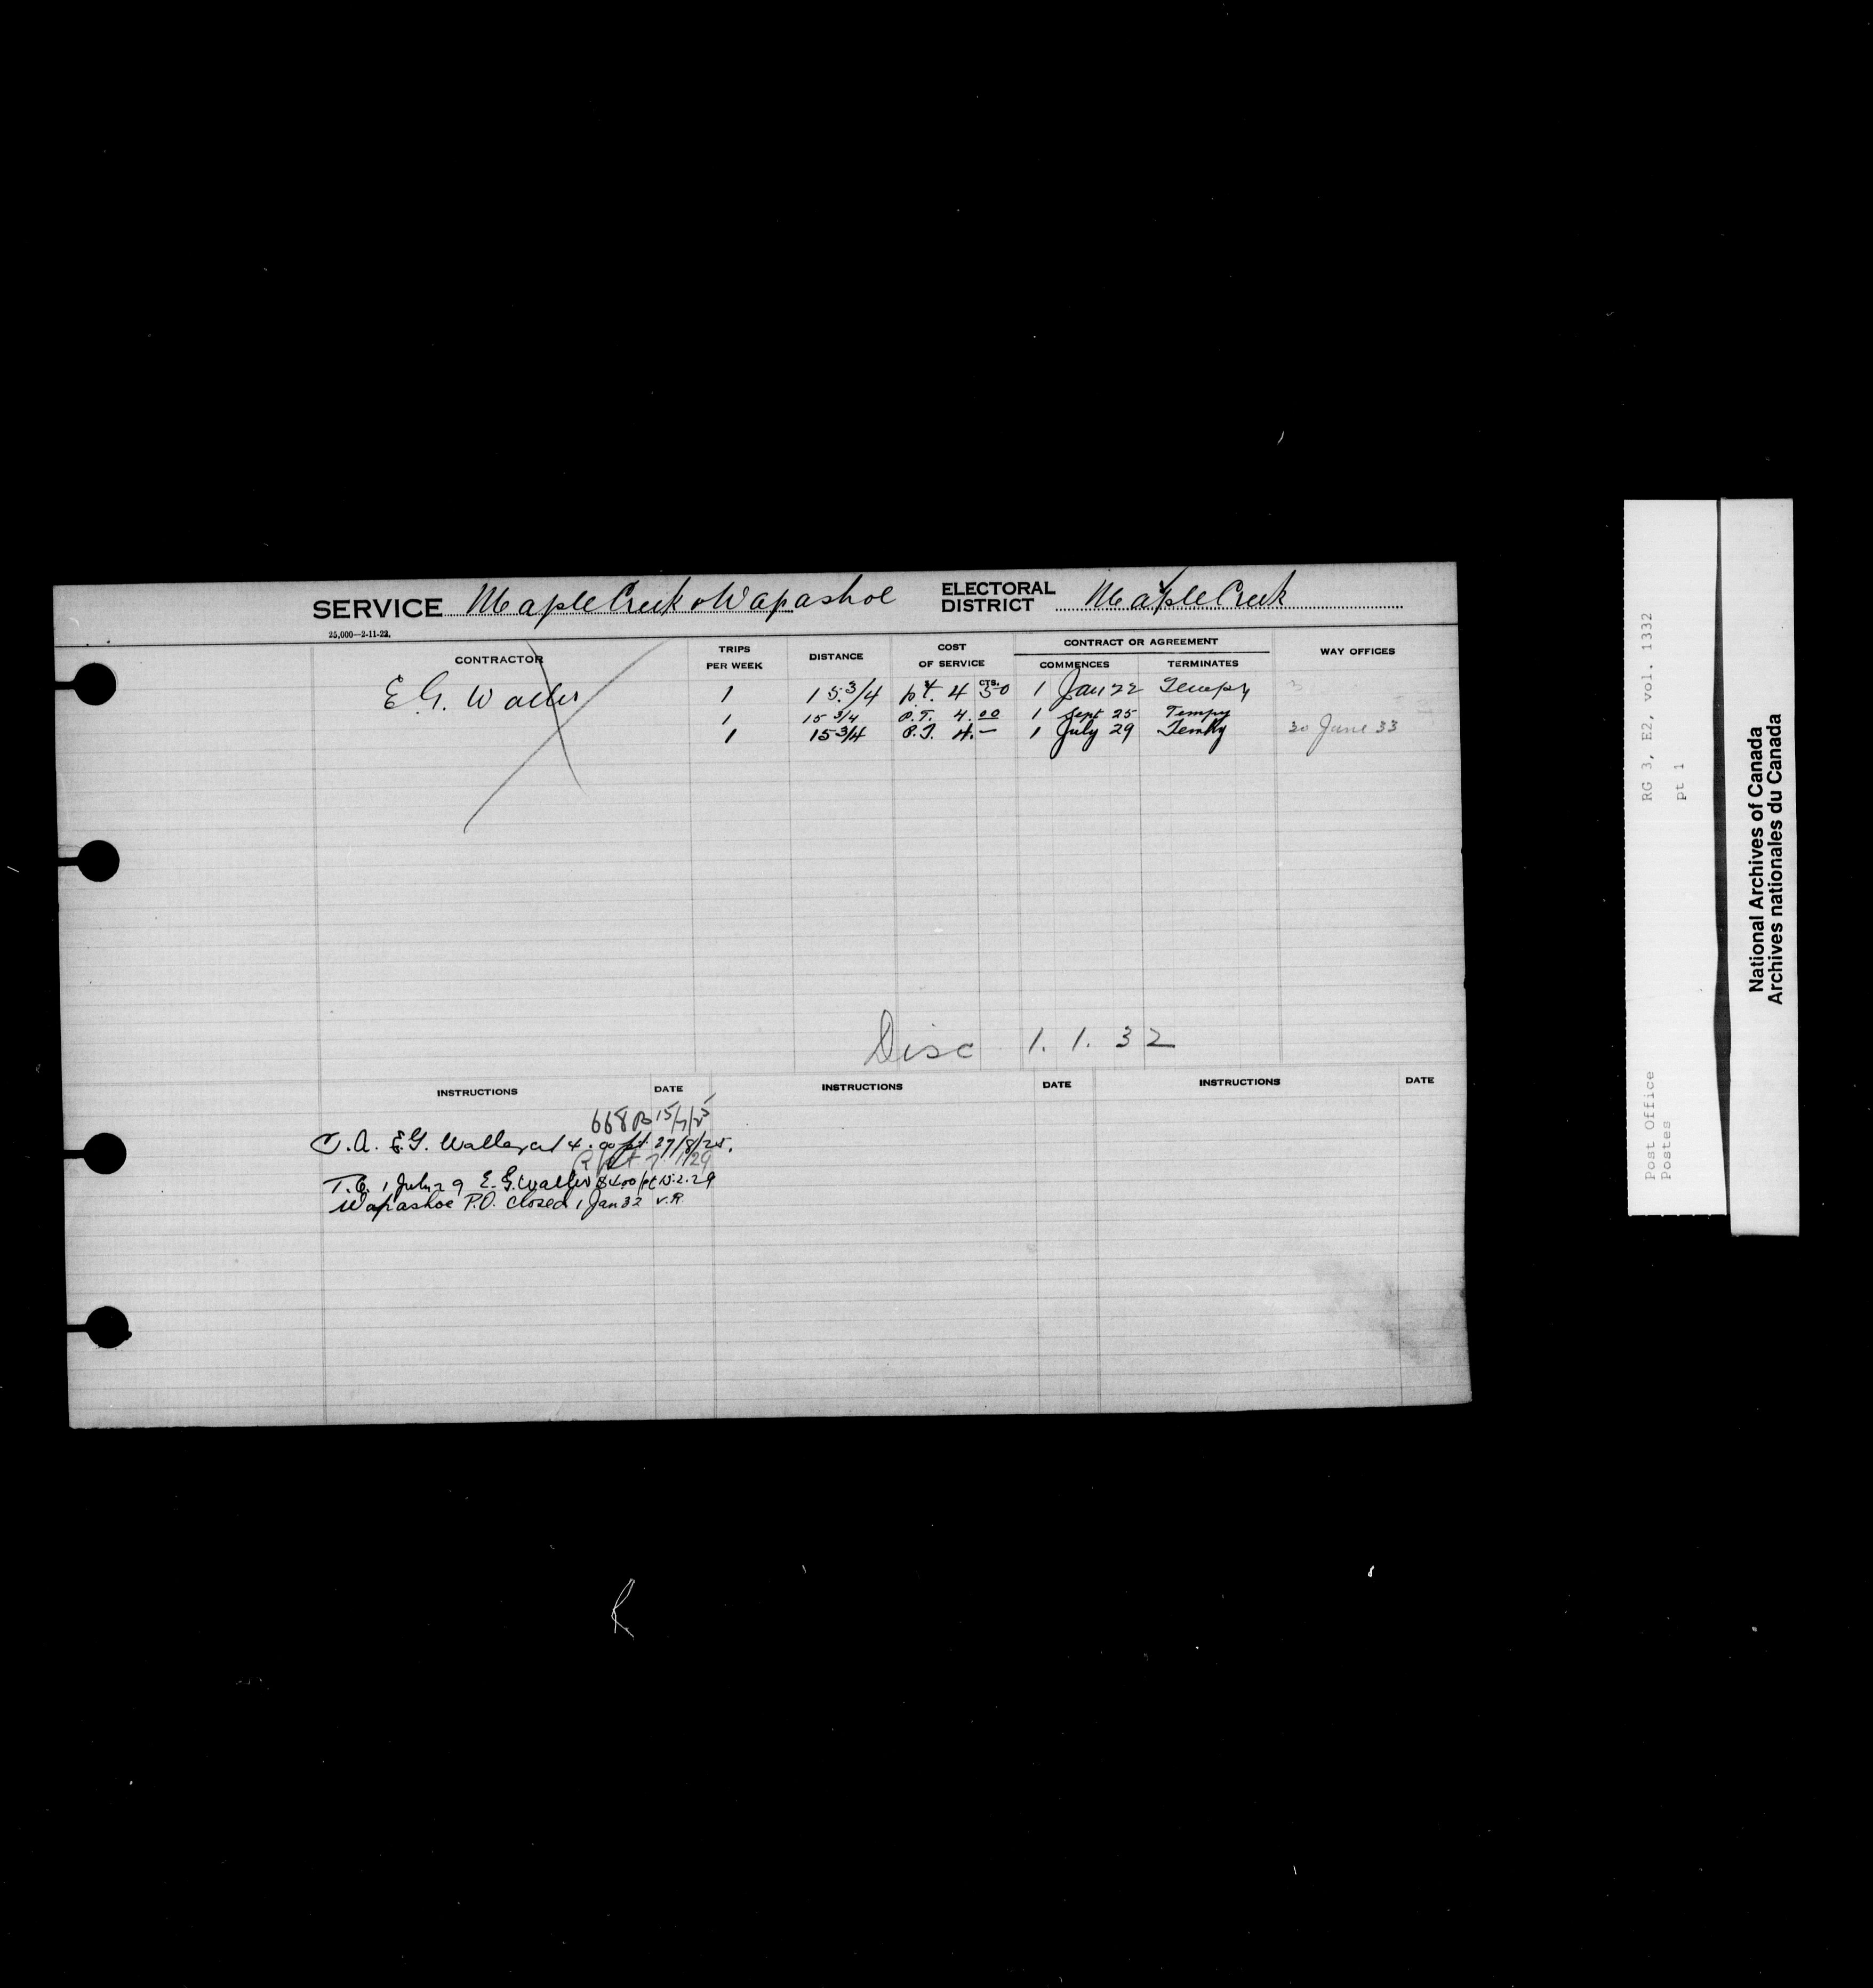 SERVICE Maple Creek & Wapashoe ELECTORAL DISTRICT Maple Creek
25,000—2-11-22.
CONTRACTOR TRIPS PER WEEK DISTANCE COST OF SERVICE CONTRACT OR AGREEMENT COMMENCES TERMINATES WAY OFFICES
E. G. Waller 1 15 3/4 p.t. 4 50 1 Jan 22 Tempy
$ CTS.
1 15 3/4 P.T. 4. 00 1 Sept 25 Tempy
1 15 3/4 P.T. 4. — 1 July 29 Temky 30 June 33
Disc 1. 1. 32
INSTRUCTIONS DATE INSTRUCTIONS DATE INSTRUCTIONS DATE
668 B 15/7/25
C.A. E.G. Waller at 4.00 pt 27/8/25.
T.C. 1 July 29 E. G. Waller $4.00 pt 15.2.29
Wapashoe P.O. closed 1 Jan 32 V.R.
RG 3, E2, vol. 1332
pt 1
Post Office
Postes
National Archives of Canada
Archives nationales du Canada